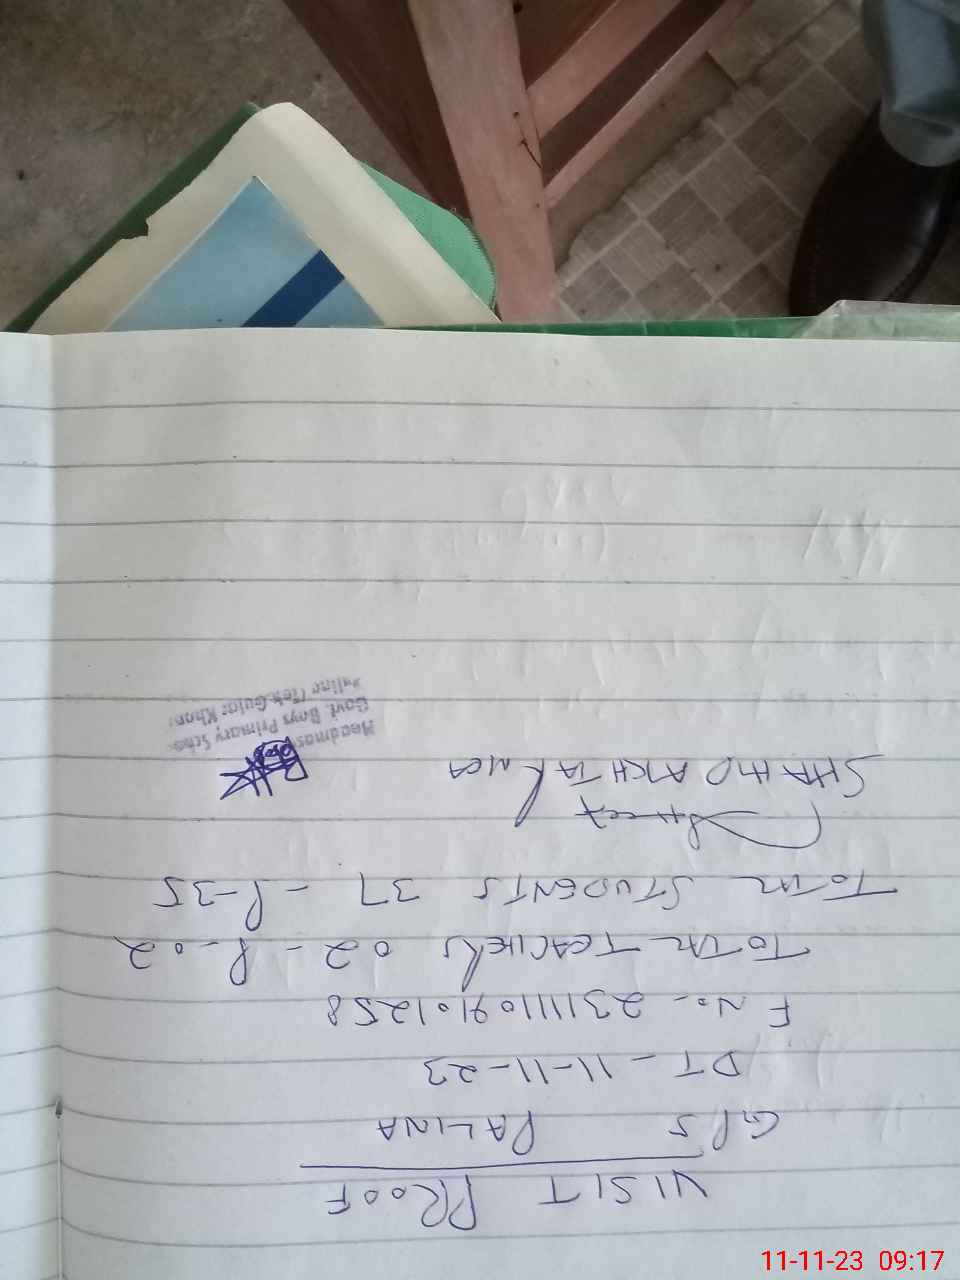 VISIT PROOF
GPS PALINA
DT - 11-11-23
F No - 23111109101258
TOTAL TEACHERS 02 - P-02
TOTAL STUDENTS 37 - P-35
SHAHID AKHTAR MEA
Govt. Boys Primary
Gujar Khan
11-11-23 09:17